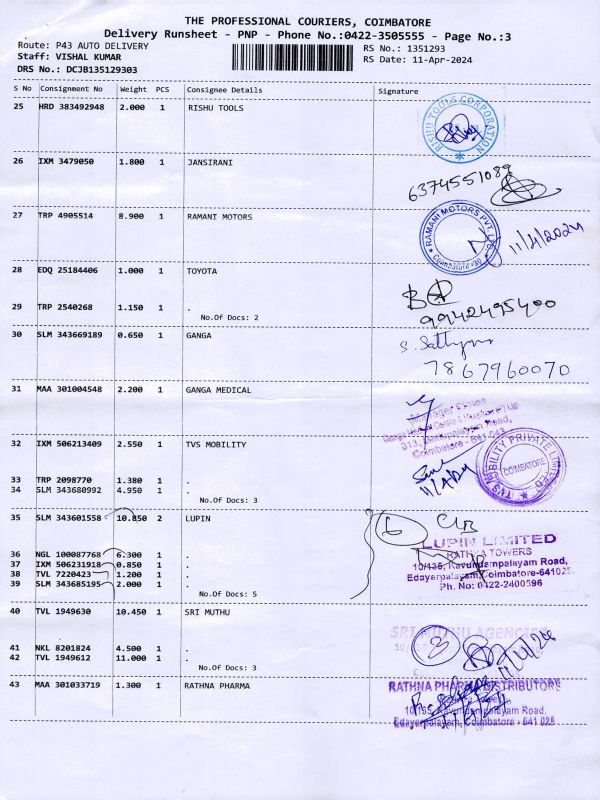 THE PROFESSIONAL COURIERS, COIMBATORE
Delivery Runsheet - PNP - Phone No.:0422-3505555 - Page No.:3
Route: P43 AUTO DELIVERY
RS No.: 1351293
Staff: VISHAL KUMAR
RS Date: 11-Apr-2024
DRS No.: DCJB135129303
S No Consignment No Weight PCS Consignee Details Signature
25 HRD 383492948 2.000 1 RISHU TOOLS
RISHU TOOLS CORPORATION
26 IXM 3479050 1.800 1 JANSIRANI
6374551089
27 TRP 4905514 8.900 1 RAMANI MOTORS
RAMANI MOTORS PVT. LTD.
Coimbatore-30
11/4/2024
28 EDQ 25184406 1.000 1 TOYOTA
29 TRP 2540268 1.150 1 .
No.Of Docs: 2
9942495400
30 SLM 343669189 0.650 1 GANGA
S. Sathya
7867960070
31 MAA 301004548 2.200 1 GANGA MEDICAL
Coimbatore - 641
32 IXM 506213409 2.550 1 TVS MOBILITY
TVS MOBILITY PRIVATE LIMITED
COIMBATORE
11/4/24
33 TRP 2098770 1.380 1 .
34 SLM 343680992 4.950 1 .
No.Of Docs: 3
35 SLM 343601558 10.850 2 LUPIN
6
LUPIN LIMITED
RATHNA TOWERS
10/135, Kavundampalayam Road,
Edayarpalayam, Coimbatore-641025.
Ph. No: 0422-2400596
36 NGL 100087768 6.300 1 .
37 IXM 506231918 0.850 1 .
38 TVL 7220423 1.200 1 .
39 SLM 343685195 2.000 1 .
No.Of Docs: 5
40 TVL 1949630 10.450 1 SRI MUTHU
SRI MUTHU AGENCIES
3
11/4/24
41 NKL 8201824 4.500 1 .
42 TVL 1949612 11.000 1 .
No.Of Docs: 3
43 MAA 301033719 1.300 1 RATHNA PHARMA
RATHNA PHARMA DISTRIBUTORS
10/135, Kavundampalayam Road,
Edayarpalayam, Coimbatore - 641 025